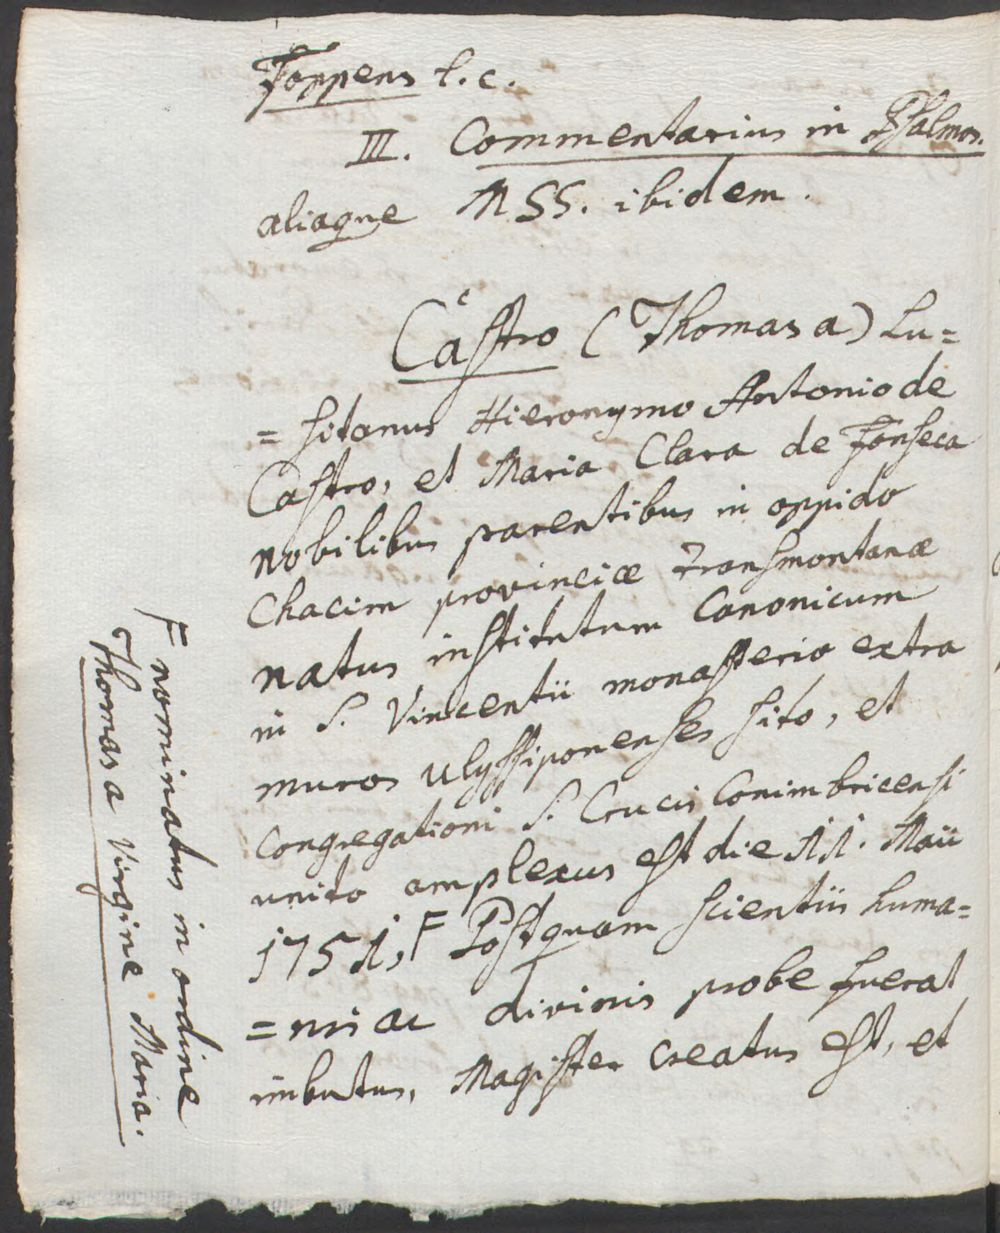 Foppens l. c.
III. Commentarius in Psalmos.
aliaque MSS. ibidem.
Castro (Thomas a) Lu=
=sitanus Hieronymo Antonio de
Castro, et Maria Clara de Fonseca
nobilibus parentibus in oppido
Chacim provinciæ Transmontanæ
natus institutum Canonicum
in S. Vincentii monasterio extra
muros Ulyssiponenses sito, et
Congregationi S. Crucis Conimbricensi
unito amplexus est die 11. Maii
1751, F Postquam scientiis huma=
=nis ac divinis probe fuerat
imbutus, Magister creatus est, et
F nominatus in ordine
Thomas a Virgine Maria.